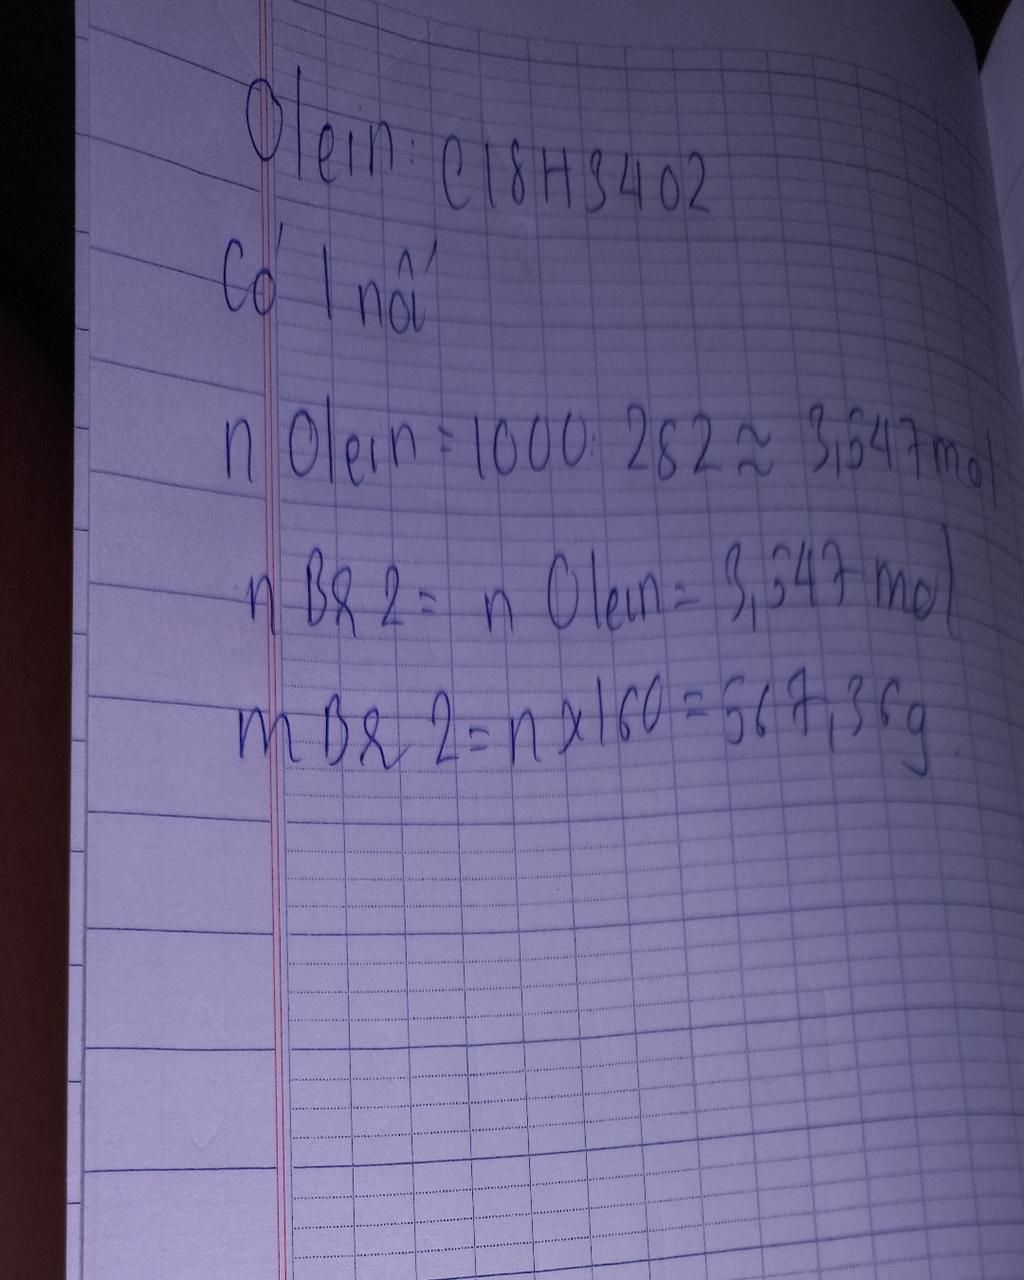 Olein: C18H34O2
Có 1 nối
n Olein = 1000: 282 ≈ 3,547 mol
n Br 2 = n Olein = 3,547 mol
m Br 2 = n x 160 = 567,36g